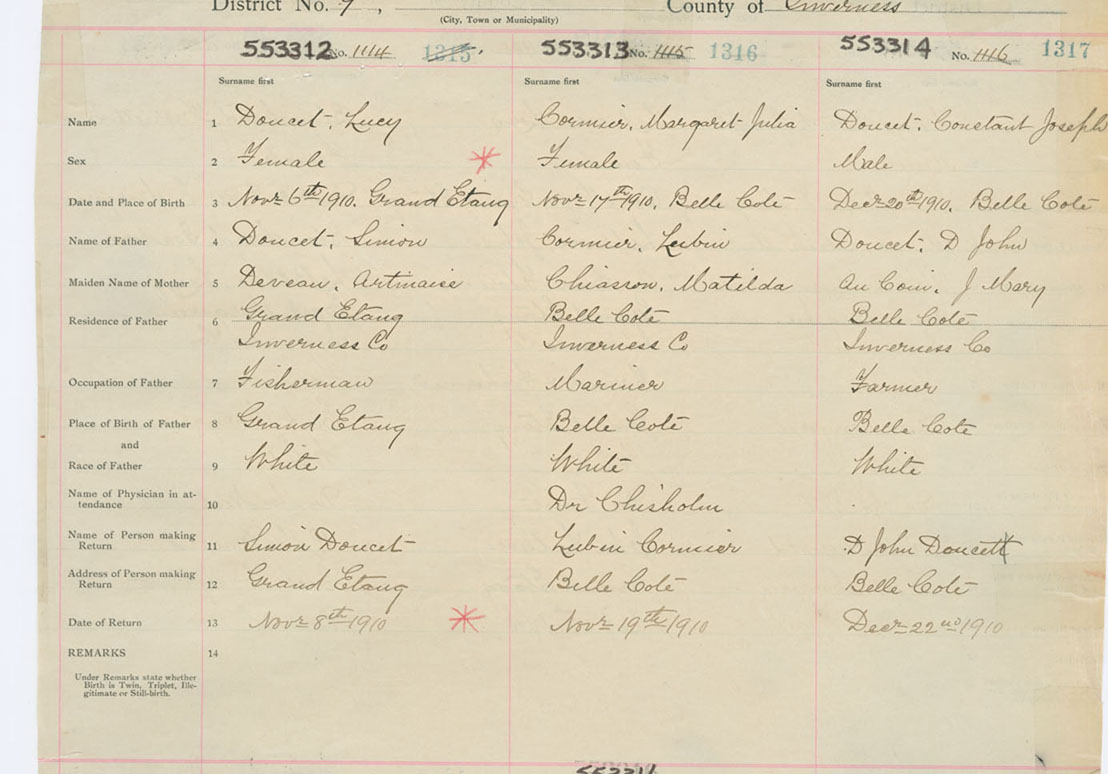 District No. 7, County of Inverness
(City, Town or Municipality)
553312 No. 1114 1315 553313 No. 1115 1316 553314 No. 1116 1317
Surname first Surname first Surname first
Name 1 Doucet, Lucy Cormier, Margaret Julia Doucet, Constant Joseph
Sex 2 Female Female Male
Date and Place of Birth 3 Novr 6th 1910. Grand Etang Novr 17th 1910. Belle Coté Decr 20th 1910. Belle Coté
Name of Father 4 Doucet, Simon Cormier, Lubin Doucet, D John
Maiden Name of Mother 5 Deveau, Artmaise Chiasson, Matilda Au Coin, J Mary
Residence of Father 6 Grand Etang Belle Coté Belle Coté
Inverness Co Inverness Co Inverness Co
Occupation of Father 7 Fisherman Mariner Farmer
Place of Birth of Father 8 Grand Etang Belle Coté Belle Coté
and
Race of Father 9 White White White
Name of Physician in at-
tendance 10 Dr Chisholm
Name of Person making
Return 11 Simon Doucet Lubin Cormier D John Doucett
Address of Person making
Return 12 Grand Etang Belle Coté Belle Coté
Date of Return 13 Novr 8th 1910 Novr 19th 1910 Decr 22nd 1910
REMARKS 14
Under Remarks state whether
Birth is Twin, Triplet, Ille-
gitimate or Still-birth.